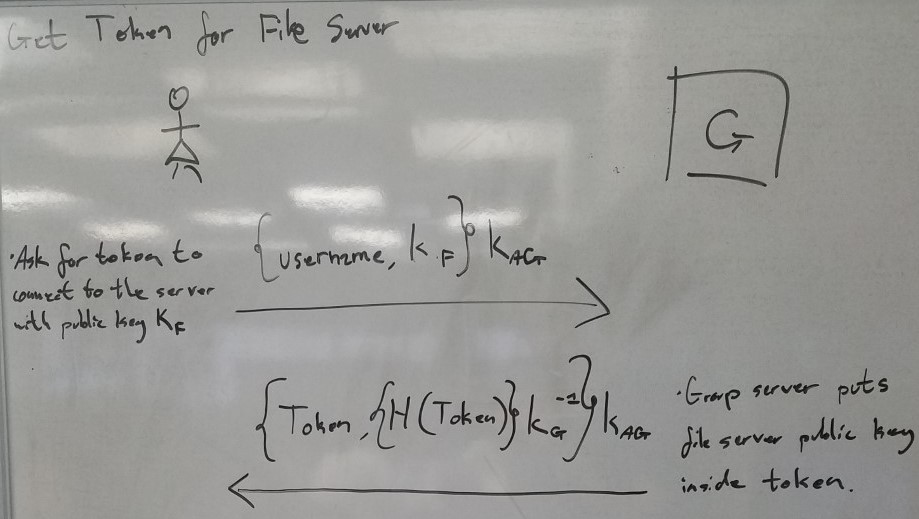 Get Token for File Server
G
·Ask for token to
connect to the server
with public key K_F
{username, k_F} k_AG
{Token, {H(Token)} k_G^-1} k_AG
·Group server puts
file server public key
inside token.